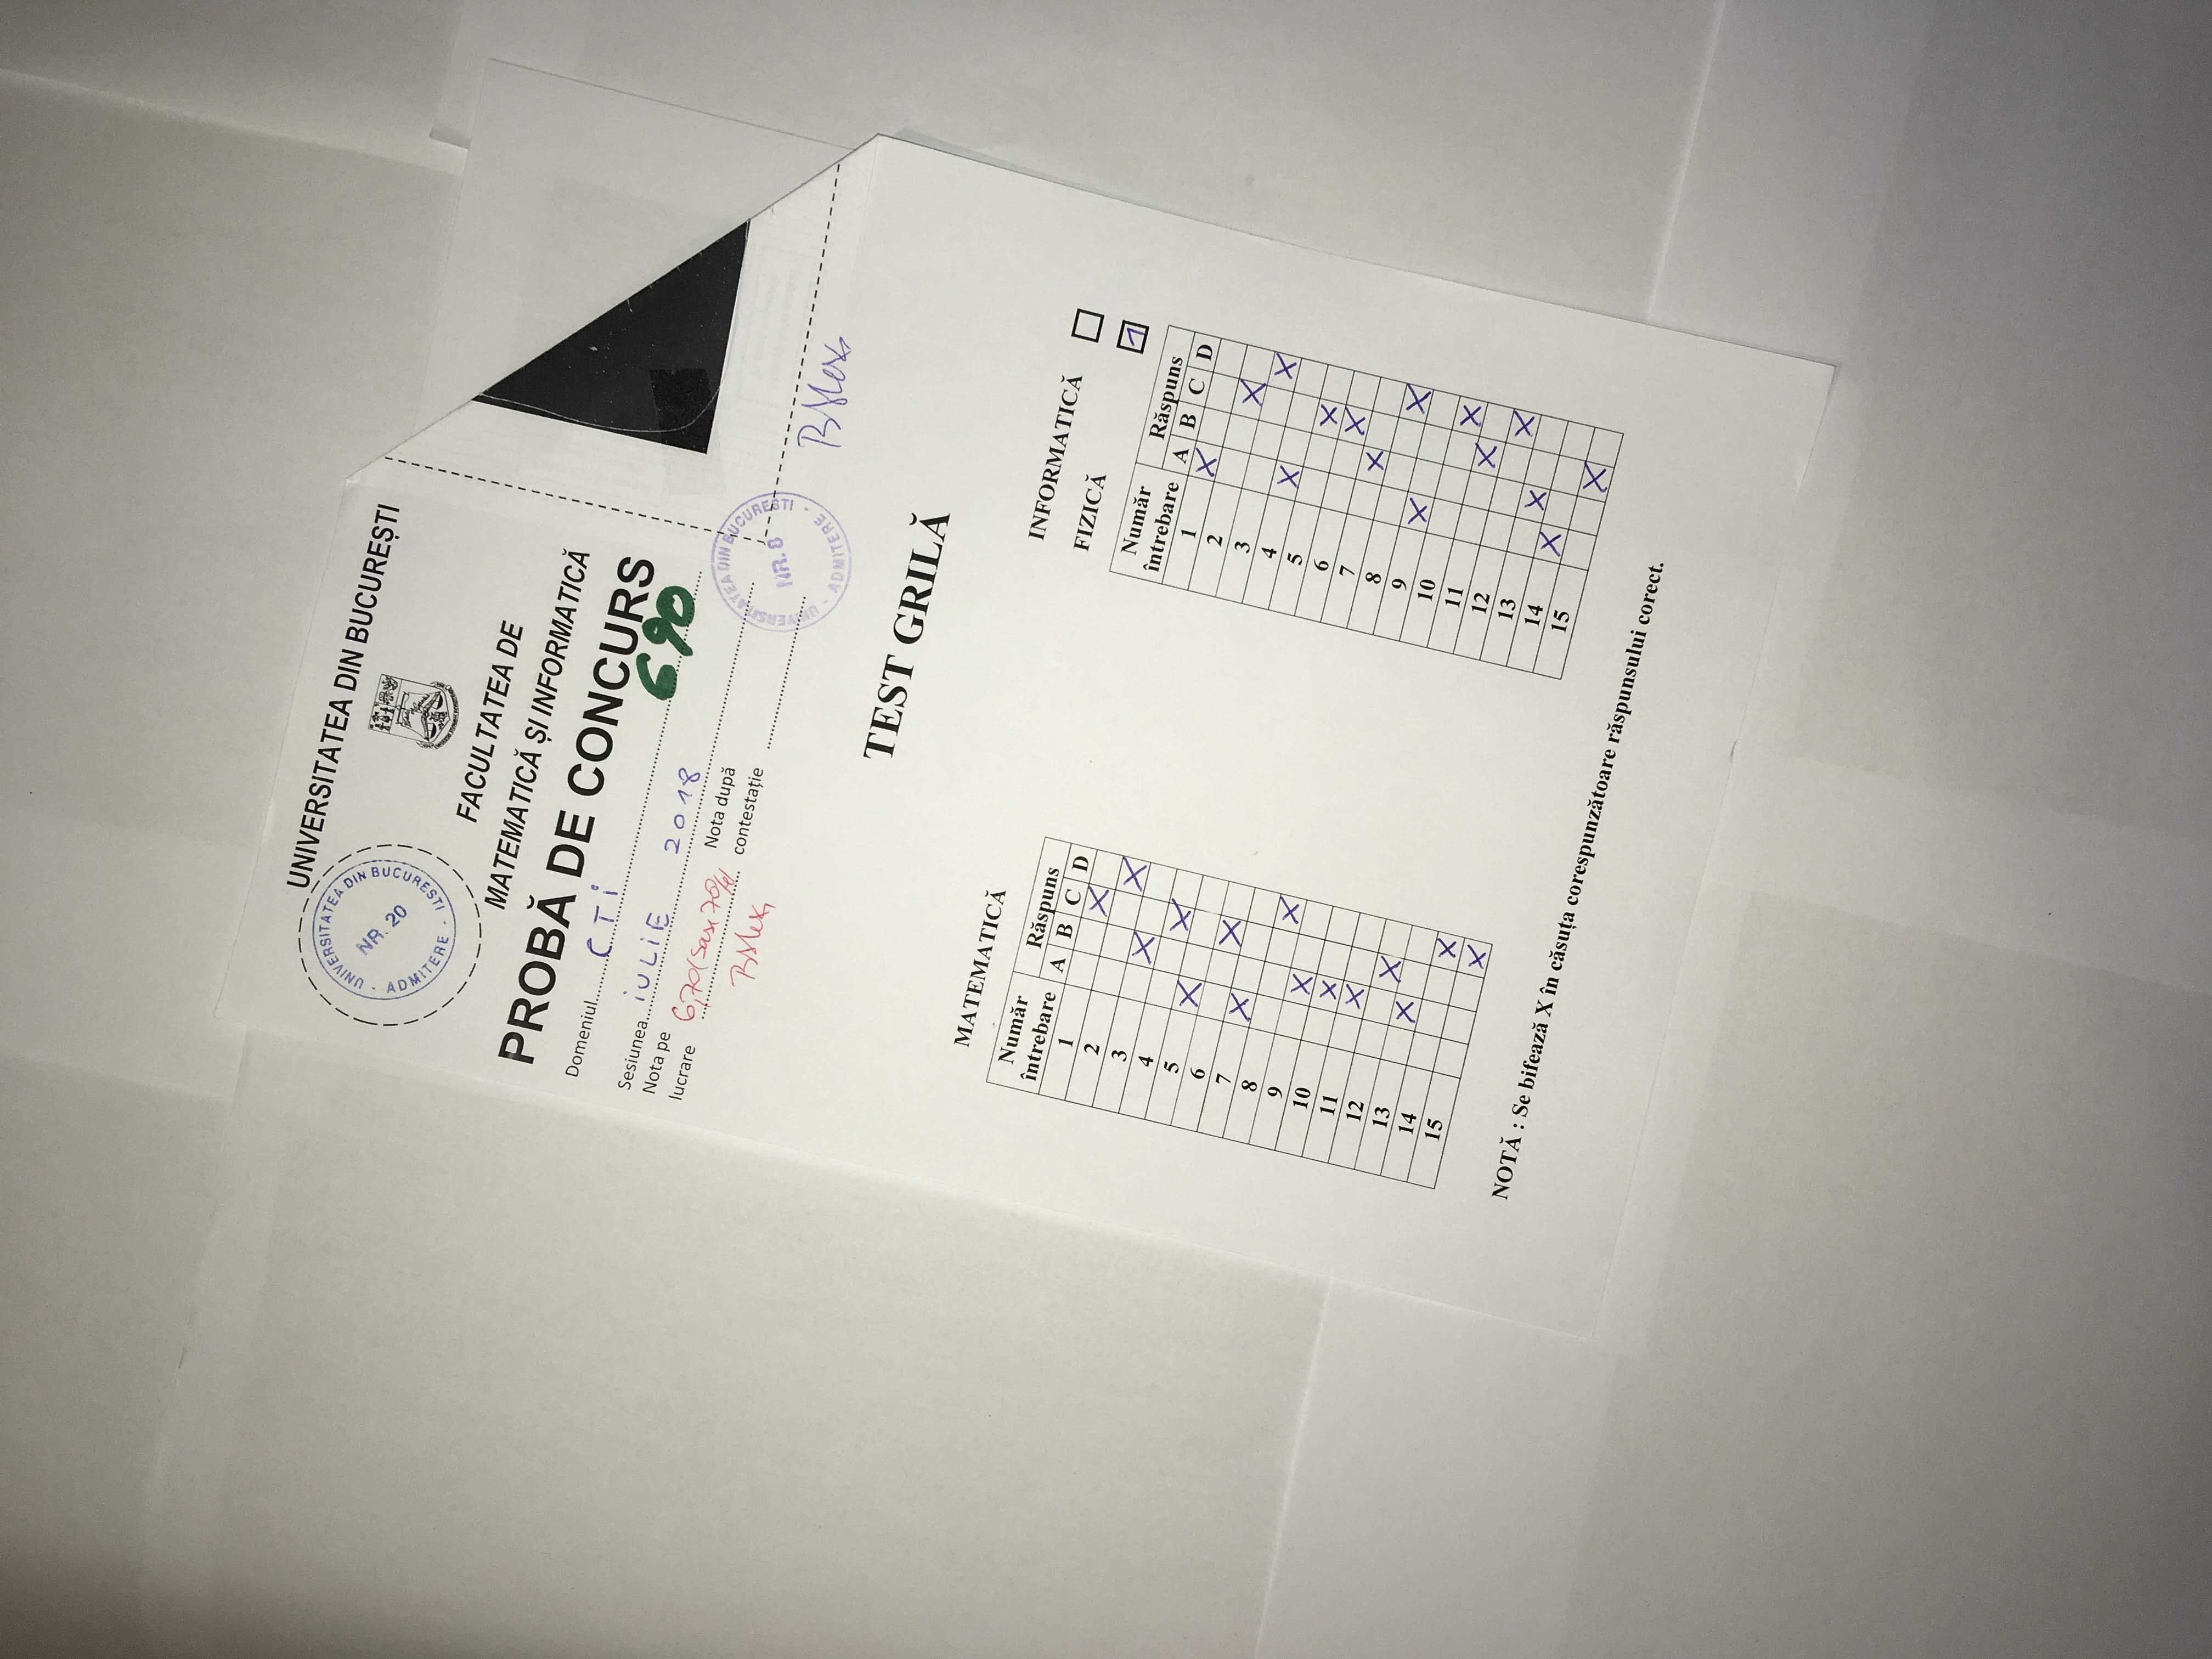 UNIVERSITATEA DIN BUCUREȘTI
UNIVERSITATEA DIN BUCURESTI - ADMITERE -
NR. 20
FACULTATEA DE
MATEMATICĂ ȘI INFORMATICĂ
PROBĂ DE CONCURS
Domeniul CTi
690
Sesiunea iULiE 2018
Nota pe lucrare 6,70 (șase 70%)
Nota după contestație
UNIVERSITATEA DIN BUCURESTI - ADMITERE -
NR. 8
TEST GRILĂ
MATEMATICĂ
Număr întrebare Răspuns
A B C D
1 X
2 X
3 X
4 X
5 X
6 X
7 X
8 X
9 X
10 X
11 X
12 X
13 X
14 X
15 X
INFORMATICĂ
FIZICĂ
Număr întrebare Răspuns
A B C D
1 X
2 X
3 X
4 X
5 X
6 X
7 X
8 X
9 X
10 X
11 X
12 X
13 X
14 X
15 X
NOTĂ : Se bifează X în căsuța corespunzătoare răspunsului corect.